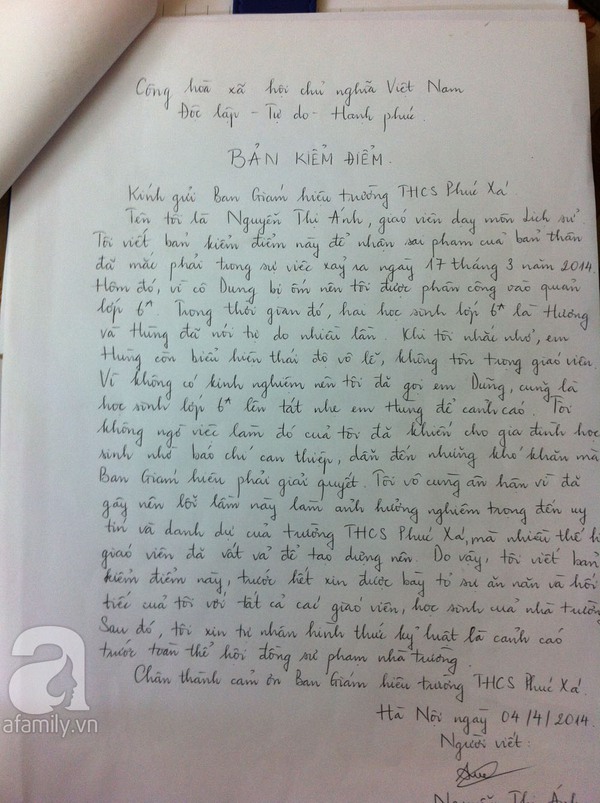 Công hoà xã hội chủ nghĩa Việt Nam
Độc lập - Tự do - Hạnh phúc.
BẢN KIỂM ĐIỂM.
Kính gửi Ban Giám hiệu trường THCS Phúc Xá
Tên tôi là Nguyễn Thị Ánh, giáo viên dạy môn Lịch sử.
Tôi viết bản kiểm điểm này để nhận sai phạm của bản thân
đã mắc phải trong sự việc xảy ra ngày 17 tháng 3 năm 2014.
Hôm đó, vì cô Dung bị ốm nên tôi được phân công vào quản
lớp 6ᴬ. Trong thời gian đó, hai học sinh lớp 6ᴬ là Hương
và Hùng đã nói tự do nhiều lần. Khi tôi nhắc nhở, em
Hùng còn biểu hiện thái độ vô lễ, không tôn trọng giáo viên.
Vì không có kinh nghiệm nên tôi đã gọi em Dũng, cũng là
học sinh lớp 6ᴬ lên tát nhẹ em Hùng để cảnh cáo. Tôi
không ngờ việc làm đó của tôi đã khiến cho gia đình học
sinh nhờ báo chí can thiệp, dẫn đến những khó khăn mà
Ban Giám hiệu phải giải quyết. Tôi vô cùng ân hận vì đã
gây nên lỗi lầm này làm ảnh hưởng nghiêm trọng đến uy
tín và danh dự của trường THCS Phúc Xá, mà nhiều thế h
giáo viên đã vất vả để tạo dựng nên. Do vậy, tôi viết bản
kiểm điểm này, trước hết xin được bày tỏ sự ăn năn và hối
tiếc của tôi với tất cả các giáo viên, học sinh của nhà trường
Sau đó, tôi xin tự nhận hình thức kỷ luật là cảnh cáo
trước toàn thể hội đồng sư phạm nhà trường.
Chân thành cảm ơn Ban Giám hiệu trường THCS Phúc Xá.
Hà Nội ngày 04/4/2014.
Người viết:
Nguyễn Thị Ánh
a
afamily.vn